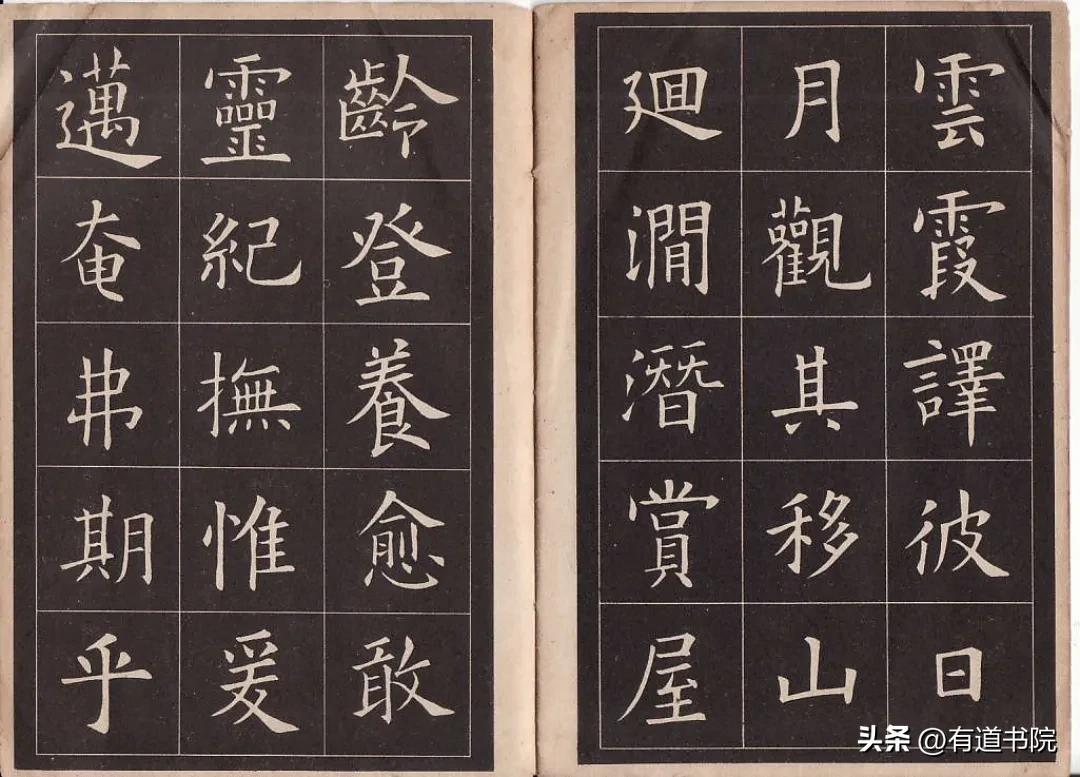 雲霞譯彼日
月觀其移山
廻澗潛賞屋
齡登養愈敢
靈紀撫惟爰
邁奄弗期乎
头条 @有道书院